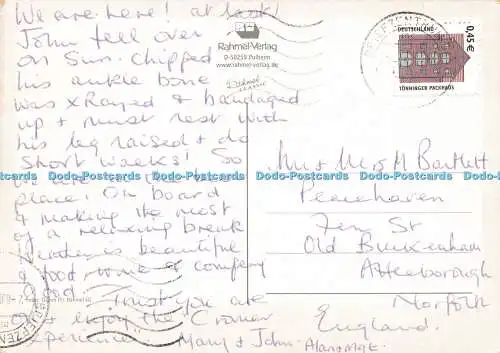 We are here! at last!
John fell over
on Sun. Chipped
his ankle bone
was x Rayed & bandaged
up & must rest with
his leg raised & do
short walks! So
place. On board
& making the most
of a relaxing break
Weather is beautiful
& food wine & company
Good. Trust you are
O.K. & enjoy the
experience. Mary & John.
Rahmel-Verlag
D-50259 Pulheim
www.rahmel-verlag.de
DEUTSCHLAND
0,45 €
TÖNNINGER PACKHAUS
BRIEFZENTRUM
Mr & Mrs M Bartlett
Fen St
Old Buckenham
Attleborough
Norfolk
England.
Dodo-Postcards Dodo-Postcards Dodo-Postcards Dodo-Postcards Dodo-Postcards
BRIEFZEN